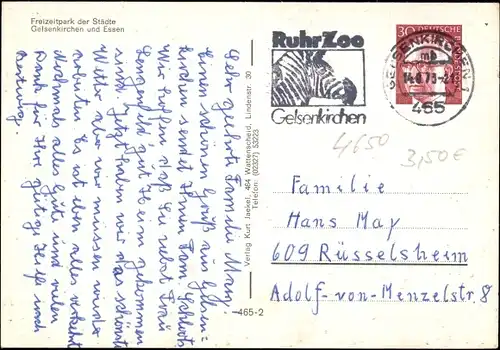 Freizeitpark der Städte
Gelsenkirchen und Essen
Sehr geehrte Familie May,
Einen schönen Gruß aus Gelsen=
kirchen sendet Ihnen Fam.
Wir hoffen daß Sie nebst Frau
gut heim gekommen
sind. Jetzt haben wir das schönste
Wetter aber wir müssen wieder
arbeiten. Es ist eben alles verkehrt
Nochmals alles Gute und vielen
Dank für Ihre gütige Hilfe
Verlag Kurt Jaekel, 464 Wattenscheid, Lindenstr. 30
Telefon: (02327) 53223
465-2
RuhrZoo
Gelsenkirchen
GELSENKIRCHEN 1
mb
465
30 DEUTSCHE BUNDESPOST
4650
3,50€
Familie
Hans May
609 Rüsselsheim
Adolf-von-Menzelstr. 8